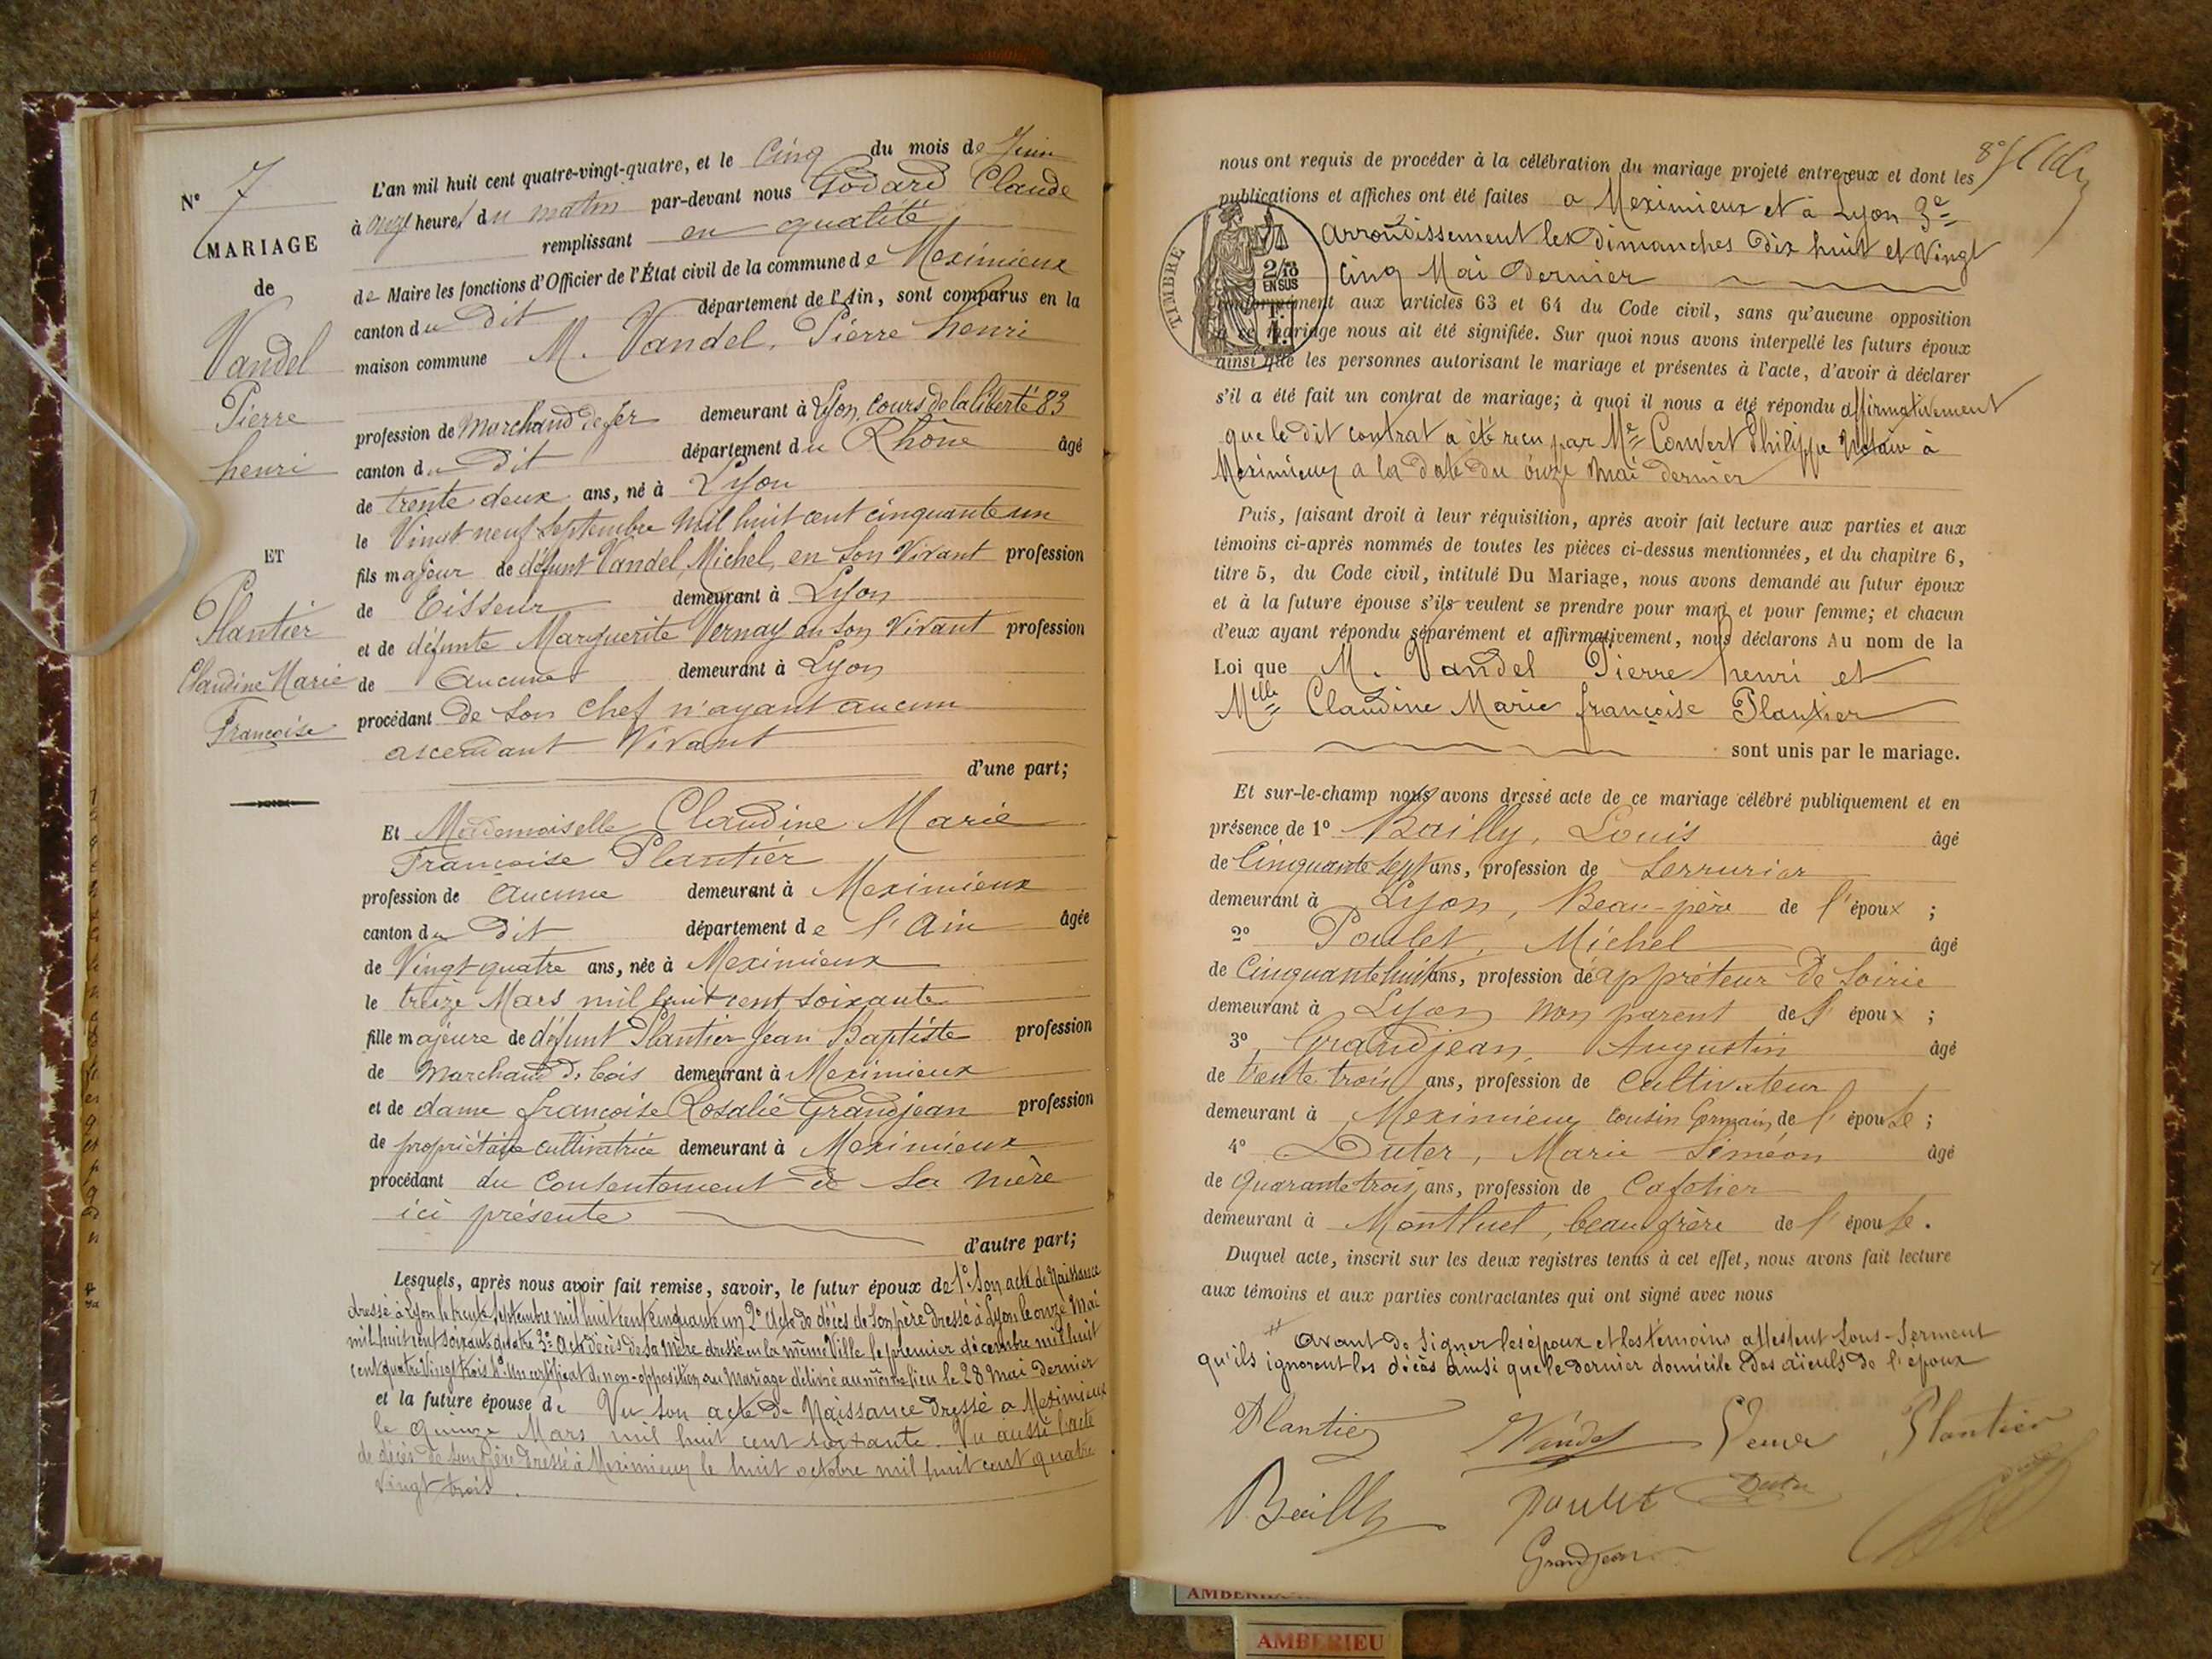 N° 7
MARIAGE
de
Vandel
Pierre
henri
ET
Plantier
Claudine Marie
Françoise
L'an mil huit cent quatre-vingt-quatre, et le Cinq du mois de Juin
à onze heures du matin par-devant nous Godard Claude
remplissant en qualité
de Maire les fonctions d'Officier de l'État civil de la commune de Meximieux
canton du dit département de l'Ain, sont comparus en la
maison commune M. Vandel, Pierre henri
profession de Marchand de fer demeurant à Lyon, Cours de la liberté 83
canton du dit département du Rhône âgé
de trente deux ans, né à Lyon
le Vingt neuf Septembre mil huit cent cinquante un
fils majeur de défunt Vandel, Michel, en son Vivant profession
de Tisseur demeurant à Lyon
et de défunte Marguerite Vernay en son Vivant profession
de Aucune demeurant à Lyon
procédant de son chef n'ayant aucun
ascendant Vivant
d'une part;
Et Mademoiselle Claudine Marie
Françoise Plantier
profession de Aucune demeurant à Meximieux
canton du dit département de l'Ain âgée
de Vingt quatre ans, née à Meximieux
le treize Mars mil huit cent soixante
fille majeure de défunt Plantier Jean Baptiste profession
de Marchand de bois demeurant à Meximieux
et de dame françoise Rosalie Grandjean profession
de propriétaire cultivatrice demeurant à Meximieux
procédant du Consentement de sa mère
ici présente
d'autre part;
Lesquels, après nous avoir fait remise, savoir, le futur époux de 1° Son acte de Naissance
dressé à Lyon le trente Septembre mil huit cent cinquante un 2° Acte de décès de son père dressé à Lyon le onze Mai
mil huit cent soixante quatre 3° Acte décès de sa Mère dressé en la même Ville le premier décembre mil huit
cent quatre Vingt trois 4° Un certificat de non-opposition au Mariage délivré au même lieu le 28 Mai dernier
et la future épouse de Vu son acte de Naissance dressé a Meximieux
le Quinze Mars mil huit cent soixante. Vu aussi l'acte
de décès de son père dressé à Meximieux le huit octobre mil huit cent quatre
Vingt trois.
8°
nous ont requis de procéder à la célébration du mariage projeté entre eux et dont les
publications et affiches ont été faites a Meximieux et à Lyon 3e
Arrondissement les dimanches dix huit et Vingt
Cinq Mai dernier
TIMBRE
2/10
EN SUS
conformément aux articles 63 et 64 du Code civil, sans qu'aucune opposition
à ce mariage nous ait été signifiée. Sur quoi nous avons interpellé les futurs époux
ainsi que les personnes autorisant le mariage et présentes à l'acte, d'avoir à déclarer
s'il a été fait un contrat de mariage; à quoi il nous a été répondu affirmativement
que le dit contrat a été recu par Me Convert Philippe Notaire à
Meximieux a la date du onze mai dernier
Puis, faisant droit à leur réquisition, après avoir fait lecture aux parties et aux
témoins ci-après nommés de toutes les pièces ci-dessus mentionnées, et du chapitre 6,
titre 5, du Code civil, intitulé Du Mariage, nous avons demandé au futur époux
et à la future épouse s'ils veulent se prendre pour mari et pour femme; et chacun
d'eux ayant répondu séparément et affirmativement, nous déclarons Au nom de la
Loi que M. Vandel Pierre henri et
Melle Claudine Marie françoise Plantier
sont unis par le mariage.
Et sur-le-champ nous avons dressé acte de ce mariage célébré publiquement et en
présence de 1° Bailly, Louis âgé
de Cinquante sept ans, profession de Serrurier
demeurant à Lyon, Beau-père de l'époux ;
2° Poulet, Michel âgé
de Cinquante huit ans, profession de appréteur de Soirie
demeurant à Lyon non parent de l'époux ;
3° Grandjean, Augustin âgé
de trente trois ans, profession de Cultivateur
demeurant à Meximieux cousin Germain de l'épouse ;
4° Duter, Marie Siméon âgé
de Quarante trois ans, profession de Cafetier
demeurant à Montluel, beau frère de l'épouse.
Duquel acte, inscrit sur les deux registres tenus à cet effet, nous avons fait lecture
aux témoins et aux parties contractantes qui ont signé avec nous
avant de signer les époux et les témoins attestent sous-serment
qu'ils ignorent les décès ainsi que le dernier domicile des aïeuls de l'époux
Plantier Vandel Veuve Plantier
Bailly Poulet Duter
Grandjean
AMBERIEU